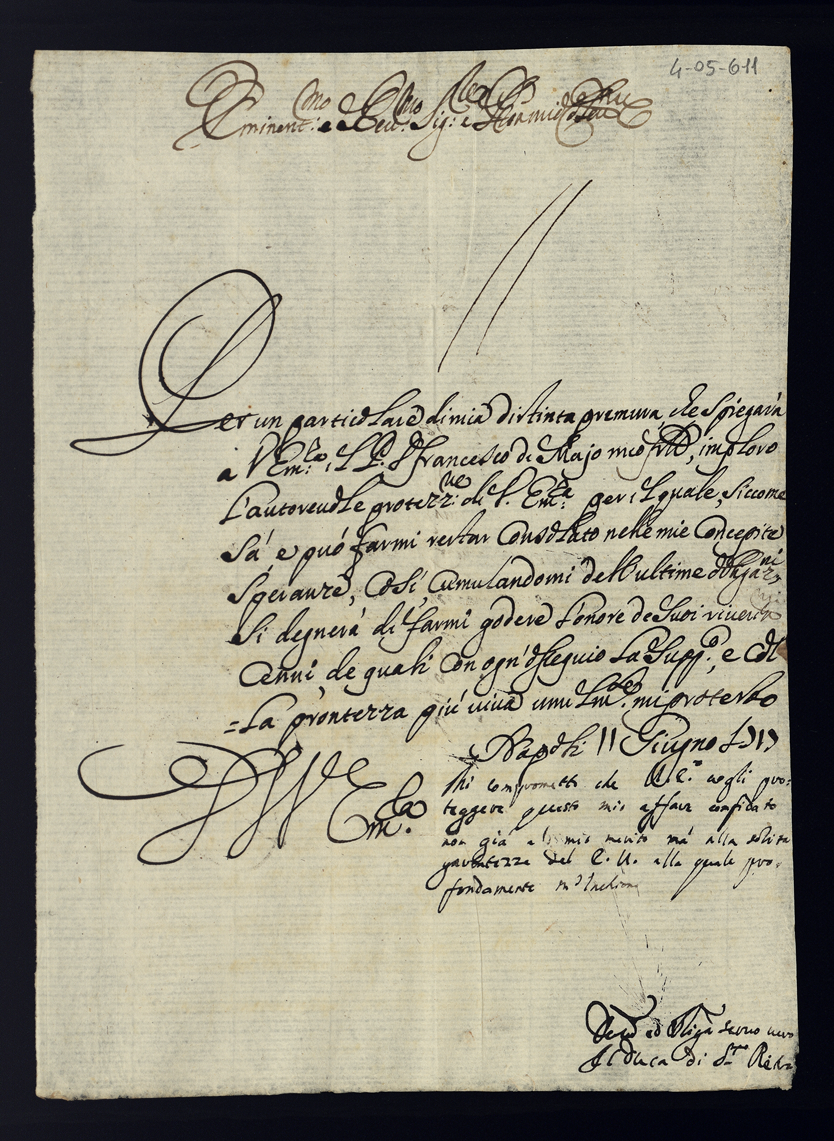 4-05-611
Eminent:mo e Reu:mo Sig: e
Per un particolare di mia distinta premura, che spiegarà
a V. Em:za il P. D. Francesco di Majo mio frlo, imploro
l'autoreuole protezz:ne di V. Em:za per il quale, siccome
sà e può farmi restar consolato nelle mie concepite
speranze, così, cumulandomi dell'ultime obligaz:ni
si degnerà di farmi godere l'onore de suoi riueriti
cenni, de quali con ogn'ossequio la supp:co, e col
=la prontezza più uiua umilm:te mi protesto
Napoli 11 Giugno
D V Em:za
Mi comprometto che V. E. uogli pro:
teggere questo mio affare confidato
non già al mio merito mà alla solita
dell' E. V. alla quale pro:
fondamente m'Inchino
ed Obliga seruo uero
Il Duca di S.